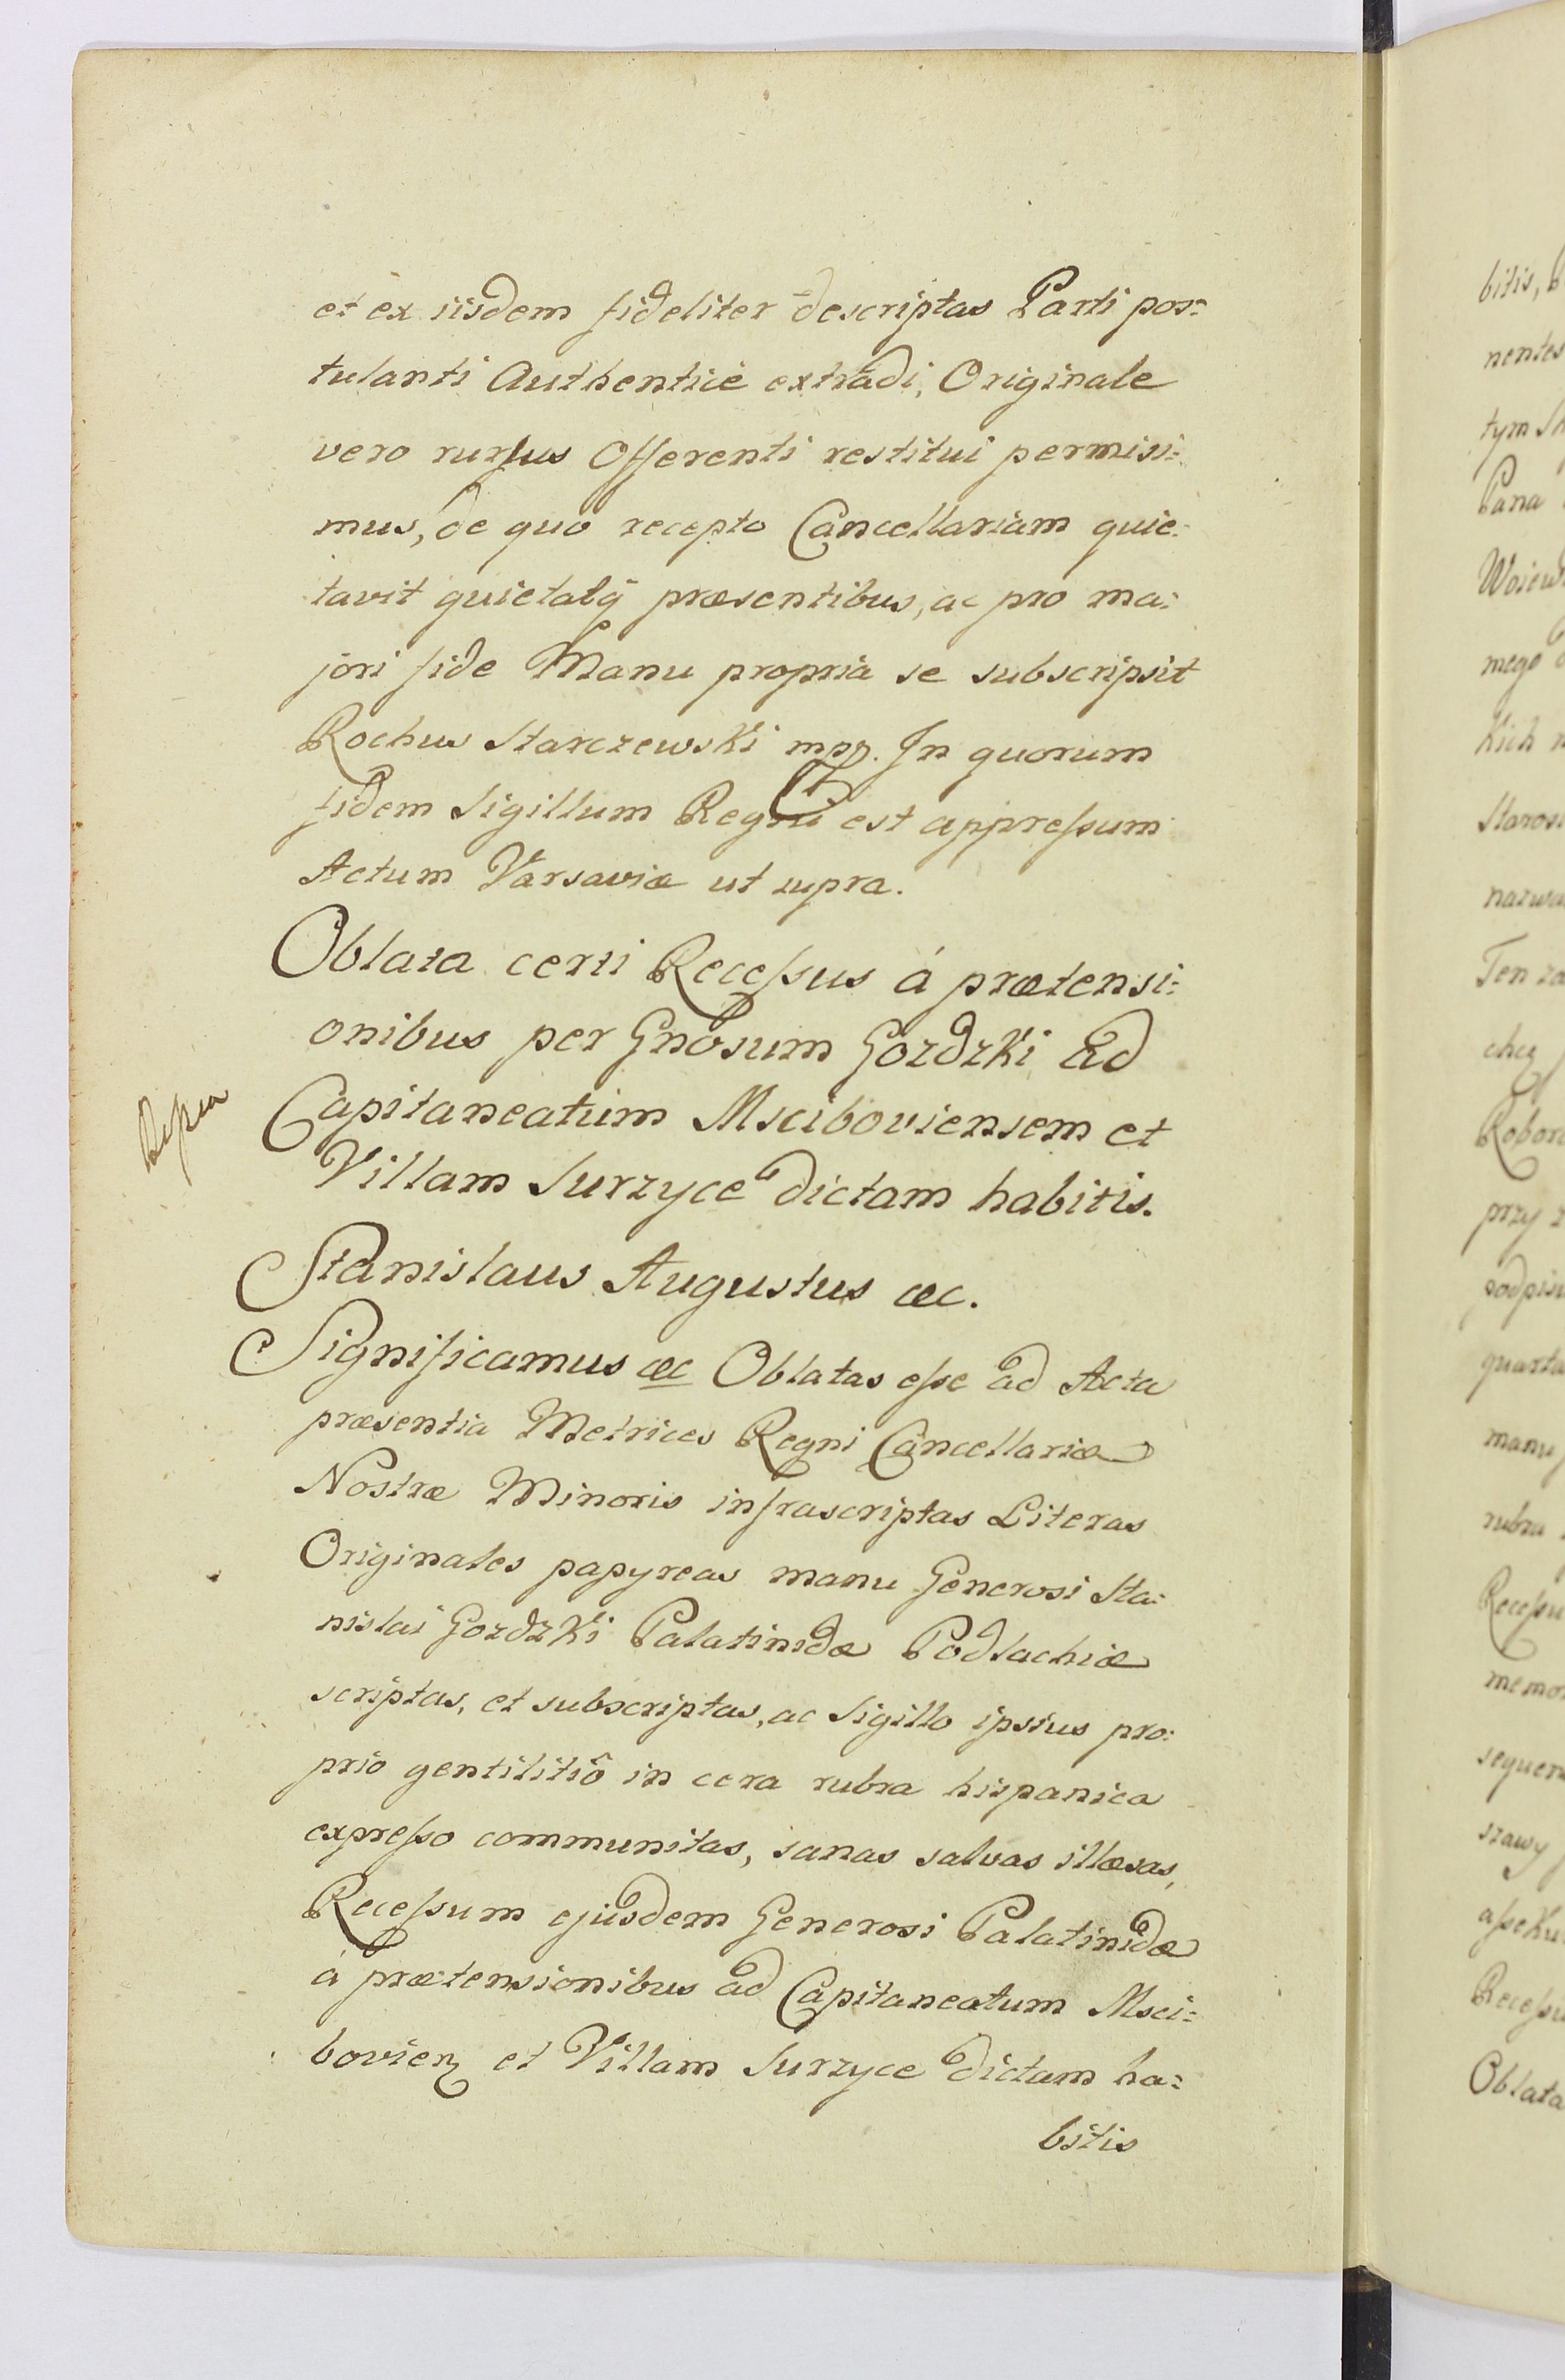 et ex iisdem fideliter descriptas Parti pos=
tulanti Authentice extradi, Originale
vero rursus Offerenti restitui permisi=
mus, de quo recepto Cancellariam quie=
tavit quietatq̃ præsentibus, ac pro ma=
jori fide Manu propria se subscripsit
Rochus Starczewski mpp. In quorum
fidem Sigillum Regni est appressum
Actum Varsaviæ ut supra.
Oblata certi Recessus á prætensi=
onibus per Gnosum Gozdzki ad
Capitaneatum Msciboviensem et
Villam Surzyce dictam habitis.
Stanislaus Augustus &c.
Significamus &c Oblatas esse ad Acta
præsentia Metrices Regni Cancellariæ
Nostræ Minoris infrascriptas Literas
Originales papyreas manu Generosi Sta=
nislai Gozdzki Palatinidæ Podlachiæ
scriptas, et subscriptas, ac Sigillo ipsius pro=
prio gentilitiô in cera rubra hispanica
expresso communitas, sanas salvas illæsas,
Recessum ejusdem Generosi Palatinidæ
á prætensionibus ad Capitaneatum Msci=
bovien et Villam Surzyce dictam ha=
bitis
bitis,
nentes
tym
Pana
mego
Kich
Ten
chcą
przy
manu
rubra
szawy
Oblata